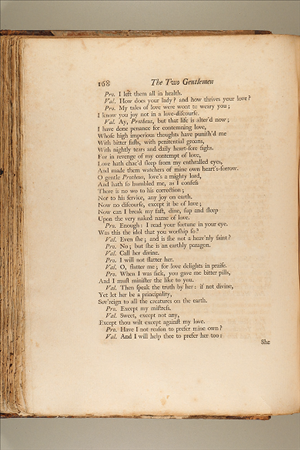 168 The Two Gentlemen
Pro. I left them all in health.
Val. How does your lady? and how thrives your love?
Pro. My tales of love were wont to weary you;
I know you joy not in a love-discourse.
Val. Ay, Protheus, but that life is alter'd now;
I have done penance for contemning love,
Whose high imperious thoughts have punish'd me
With bitter fasts, with penitential groans,
With nightly tears and daily heart-sore sighs.
For in revenge of my contempt of love,
Love hath chac'd sleep from my enthralled eyes,
And made them watchers of mine own heart's-sorrow.
O gentle Protheus, love's a mighty lord,
And hath so humbled me, as I confess
There is no wo to his correction;
Nor to his service, any joy on earth.
Now no discourse, except it be of love;
Now can I break my fast, dine, sup and sleep
Upon the very naked name of love.
Pro. Enough: I read your fortune in your eye.
Was this the idol that you worship so?
Val. Even she; and is she not a heav'nly saint?
Pro. No; but she is an earthly paragon.
Val. Call her divine.
Pro. I will not flatter her.
Val. O, flatter me; for love delights in praise.
Pro. When I was sick, you gave me bitter pills,
And I must minister the like to you.
Val. Then speak the truth by her: if not divine,
Yet let her be a principality,
Sov'reign to all the creatures on the earth.
Pro. Except my mistress.
Val. Sweet, except not any,
Except thou wilt except against my love.
Pro. Have I not reason to prefer mine own?
Val. And I will help thee to prefer her too:
She